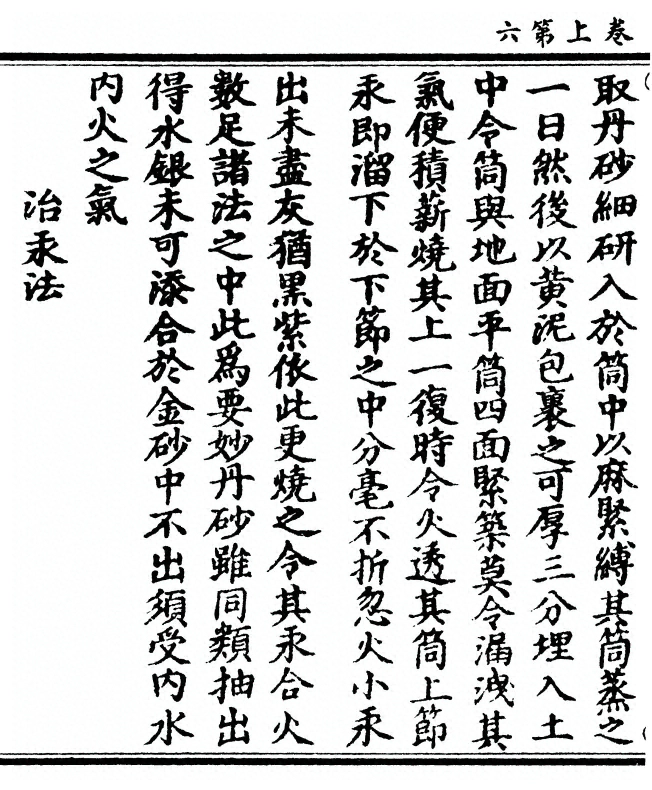 卷上第六
取丹砂細研入於筒中以麻緊縛其筒蒸之
一日然後以黄泥包裹之可厚三分埋入土
中令筒與地面平筒四面緊築莫令漏洩其
氣便積薪燒其上一復時令火透其筒上節
汞即溜下於下節之中分毫不折忽火小汞
出未盡灰猶黒紫依此更燒之令其汞合火
數足諸法之中此爲要妙丹砂雖同類抽出
得水銀未可添合於金砂中不出須受内水
内火之氣
治汞法